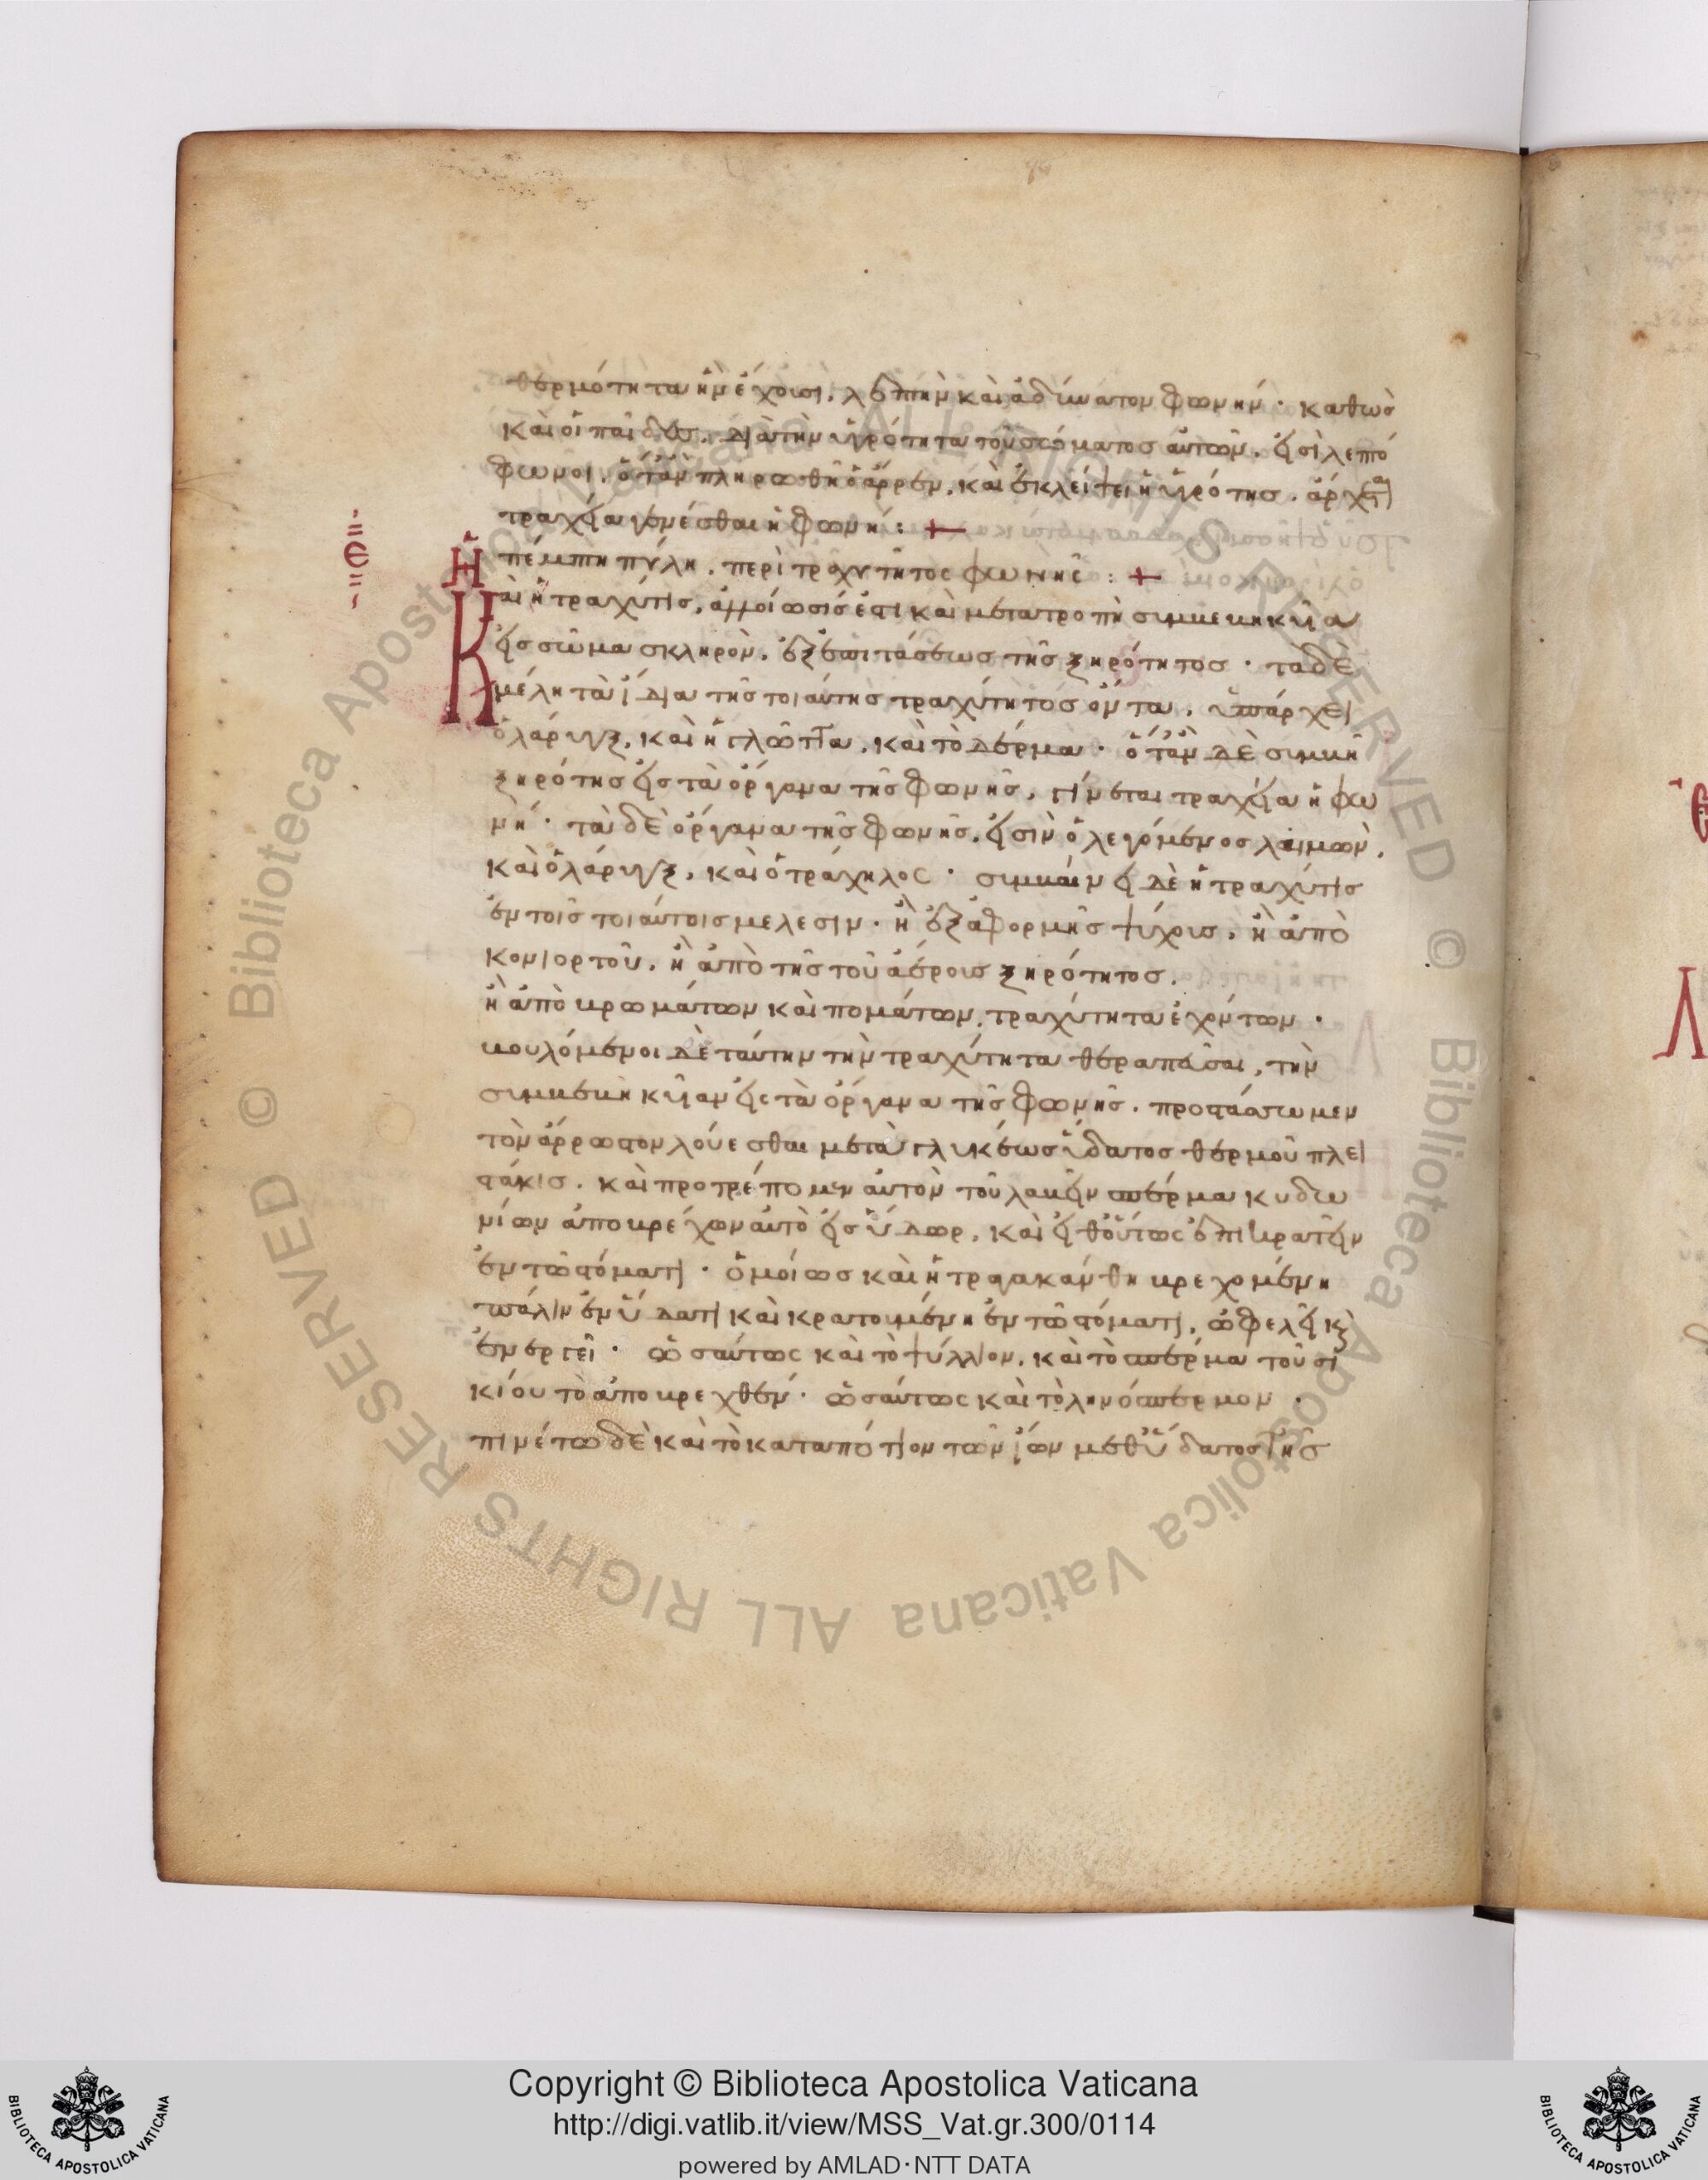 θερμότητα ἣν ἔχουσι, λεπτὴν καὶ ἀδύνατον φωνήν · καθὼσ
καὶ οἱ παῖδεσ. διὰ τὴν ὑγρότητα τοῦ σώματοσ αὐτῶν, εἰσὶ λεπτό
φωνοι, ὅταν πληρωθῆ ὁ ἄρρεν, καὶ ἐκλείψει ἡ ὑγρότησ. ἄρχεται
τραχεῖα γενέσθαι ἡ φωνή : +
Ἡ πέμπτη πύλη. περὶ τροχυτῆτος φωνῆς : +
Καὶ ἡ τραχύτισ, ἀλλοίωσίσ ἐστι καὶ μετατροπὴ συμβεβηκυῖα
εἰσ σῶμα σκληρὸν, ἐξ ἐπιτάσεωσ τῆσ ξηρότητοσ · τὰ δὲ
μέλη τὰ ἴδια τῆσ τοιαύτησ τραχύτητοσ ὄντα, ὑπάρχει
ὁ λάρυγξ, καὶ ἡ γλῶττα, καὶ τὸ δέρμα · ὅταν δὲ συμβῆ
ξηρότησ εἰσ τὰ ὄργανα τῆσ φωνῆσ, γίνεται τραχεῖα ἡ φω
νὴ · τὰ δὲ ὄργανα τῆσ φωνῆσ, εἰσὶν ὁ λεγόμενοσ λαιμὼν,
καὶ ὁ λάρυγξ, καὶ ὁ τράχηλος · συμβαίνει δὲ ἡ τραχύτισ
ἐν τοῖσ τοιαύτοισ μέλεσιν · ἢ ἐξ ἀφορμῆσ ψύχουσ, ἢ ἀπὸ
κονιορτοῦ, ἢ ἀπὸ τῆσ τοῦ ἀέροισ ξηρότητοσ,
ἢ ἀπὸ βρωμάτων καὶ πομάτων, τραχύτητα ἐχόντων ·
βουλόμενοι δὲ ταύτην τὴν τραχύτητα θεραπεῦσαι, τὴν
συμβεβηκυῖαν εἰς τὰ ὄργανα τῆσ φωνῆσ. προστάσσωμεν
τὸν ἄρρωστον λούεσθαι μετὰ γλυκέωσ ὕδατοσ θερμοῦ πλει
στάκισ. καὶ προτρέπομεν αὐτὸν τοῦ λαβεῖν σπέρμα κυδω
νίων ἀποβρέχων αὐτὸ εἰσ ὕδωρ, καὶ εἶθ οὕτως ἐπικρατεῖν
ἐν τῶ στόματι · ὁμοίωσ καὶ ἡ τραγακάνθη βρεχομένη
πάλιν ἐν ὕδατι καὶ κρατουμένη ἐν τῶ στόματι, ὠφελεῖ κ
ἐνεργεῖ · ὡσαύτως καὶ τὸ ψύλλιον, καὶ τὸ σπέρμα τοῦ σι
κίου τὸ ἀποβρεχθέν · ὡσαύτως καὶ τὸ λινόσπερμον ·
πινέτω δὲ καὶ τὸ καταπότιον τῶν ἴων μεθ ὕδατοσ τῆσ
Copyright © Biblioteca Apostolica Vaticana
http://digi.vatlib.it/view/MSS_Vat.gr.300/0114
powered by AMLAD·NTT DATA